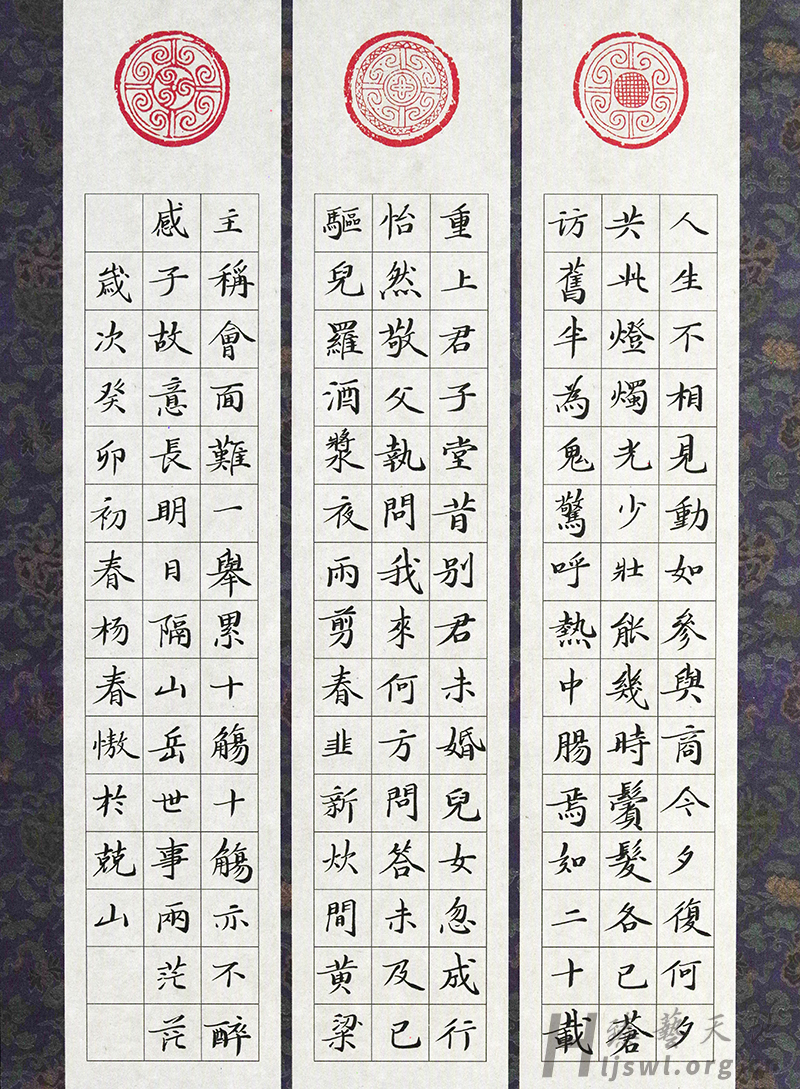 人生不相見動如參與商今夕復何夕
共此燈燭光少壯能幾時鬢髮各已蒼
访舊半為鬼驚呼熱中腸焉如二十載
重上君子堂昔别君未婚兒女忽成行
怡然敬父執問我來何方問答未及已
驅兒羅酒漿夜雨剪春韭新炊間黄粱
主稱會面難一舉累十觴十觴亦不醉
感子故意長明日隔山岳世事兩茫茫
歲次癸卯初春杨春傲於兢山
藝天
ljswl.org